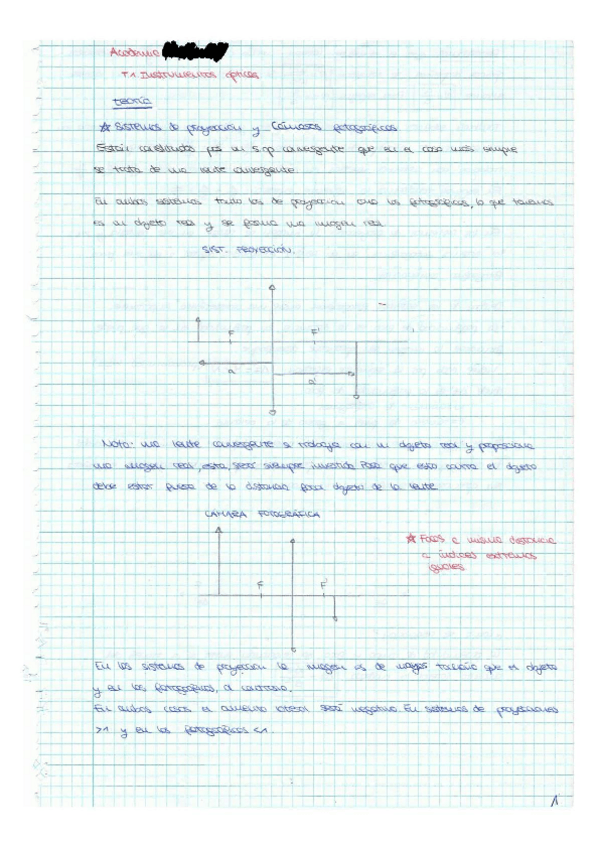 Academia
T.1 Instrumentos ópticos
teoría
☆ Sistemas de proyección y Cámaras fotográficas
Están constituidos por un s.o.p convergente que en el caso más simple
se trata de una lente convergente.
En ambos sistemas tanto los de proyección como los fotográficos, lo que tenemos
es un objeto real y se forma una imagen real.
SIST. PROYECCIÓN.
F F'
a
a'
Nota: una lente convergente si trabaja con un objeto real y proporciona
una imagen real, esta, será siempre invertida. Para que esto ocurra el objeto
debe estar fuera de la distancia focal objeto de la lente.
CÁMARA FOTOGRÁFICA
☆ Focos a misma distancia
a índices extremos
iguales
F F'
En los sistemas de proyección la imagen es de mayor tamaño que el objeto
y en los fotográficos, al contrario.
En ambos casos el aumento lateral será negativo. En sistemas de proyecciones
>1 y en los fotográficos <1.
1